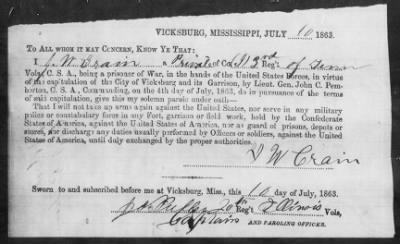 VICKSBURG, MISSISSIPPI, JULY 10 1863.
TO ALL WHOM IT MAY CONCERN, KNOW YE THAT:
I J. W. Crain a Private of Co. H 3d Reg't of Tenn
Vols, C. S. A., being a prisoner of War, in the hands of the United States Forces, in virtue
of the capitulation of the City of Vicksburg and its Garrison, by Lieut. Gen. John C. Pem-
berton, C. S. A., Commanding, on the 4th day of July, 1863, do in pursuance of the terms
of said capitulation, give this my solemn parole under oath—
That I will not take up arms again against the United States, nor serve in any military
police or constabulary force in any Fort, garrison or field work, held by the Confederate
States of America, against the United States of America, nor as guard of prisons, depots or
stores, nor discharge any duties usually performed by Officers or soldiers, against the United
States of America, until duly exchanged by the proper authorities.
J W Crain
Sworn to and subscribed before me at Vicksburg, Miss., this 10 day of July, 1863.
20th Reg't Illinois Vols,
Captain AND PAROLING OFFICER.